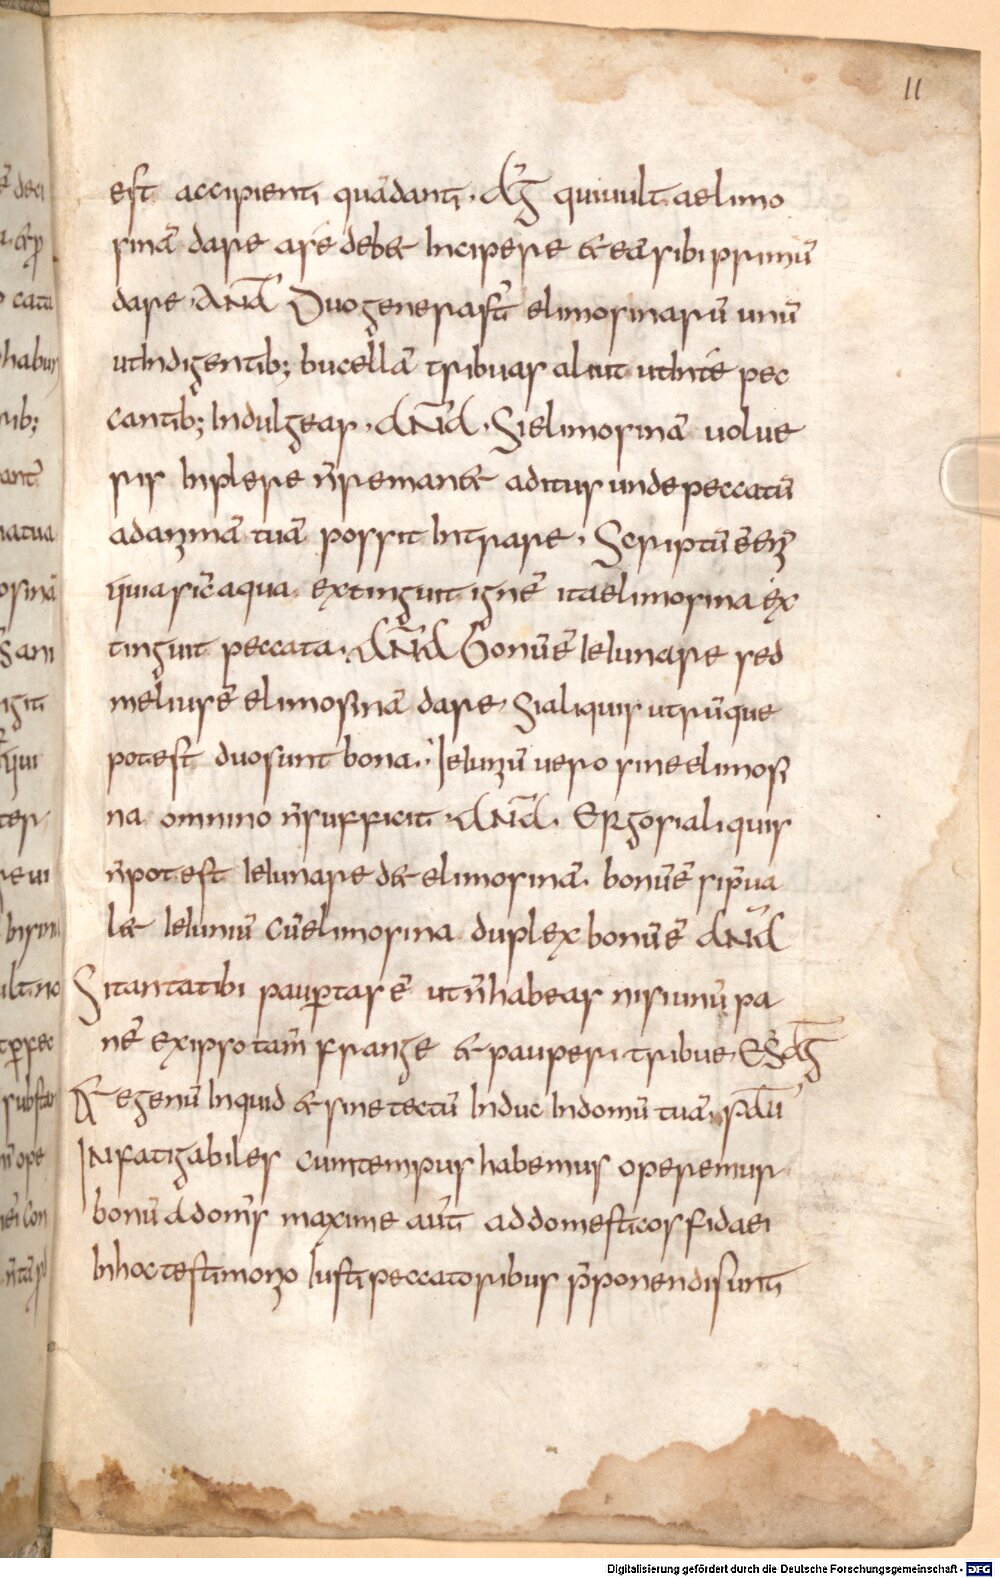 11
est accipienti quādanti. AḠ quiuult aelimo
sinā dare aśe debet Incipere & eā sibi primū
dare. AND̄ Duo genera st̄ elimosinarū unū
ut Indigentib; bucellā tribuas aliut ut Inte pec
cantib; Indulgeas. AND̄. Si elimosinā uolue
ris Inplere n̄ remanet aditus unde peccatū
ad animā tuā possit Intrare. Scriptū ē enī
quia sic̄ aqua extinguit ignē ita elimosina ex
tinguit peccata. AND̄ Bonū ē Ieiunare sed
melius ē elimosinā dare. Si aliquis utrūque
potest duo sunt bona. Ieiuniū uero sine elimosi
na omnino n̄ sufficit. AND̄. Ergo si aliquis
n̄ potest Ieiunare det elimosinā. bonū ē si p̄ua
let Ieiuniū cū elimosina duplex bonū ē AND̄
Si tanta tibi paup̄tas ē ut n̄ habeas nisi unū pa
nē ex ipso tam̄ frange & pauperi tribue. ES AḠ
& egenū Inquid & sine tectū Induc In domū tuā. PAŪ
INfatigabiles cum tempus habemus operemur
bonū ad om̄s maxime aūt ad domesticos fidaei
In hoc testimonio Iusti peccatoribus p̄ponendi sunt
Digitalisierung gefördert durch die Deutsche Forschungsgemeinschaft - DFG